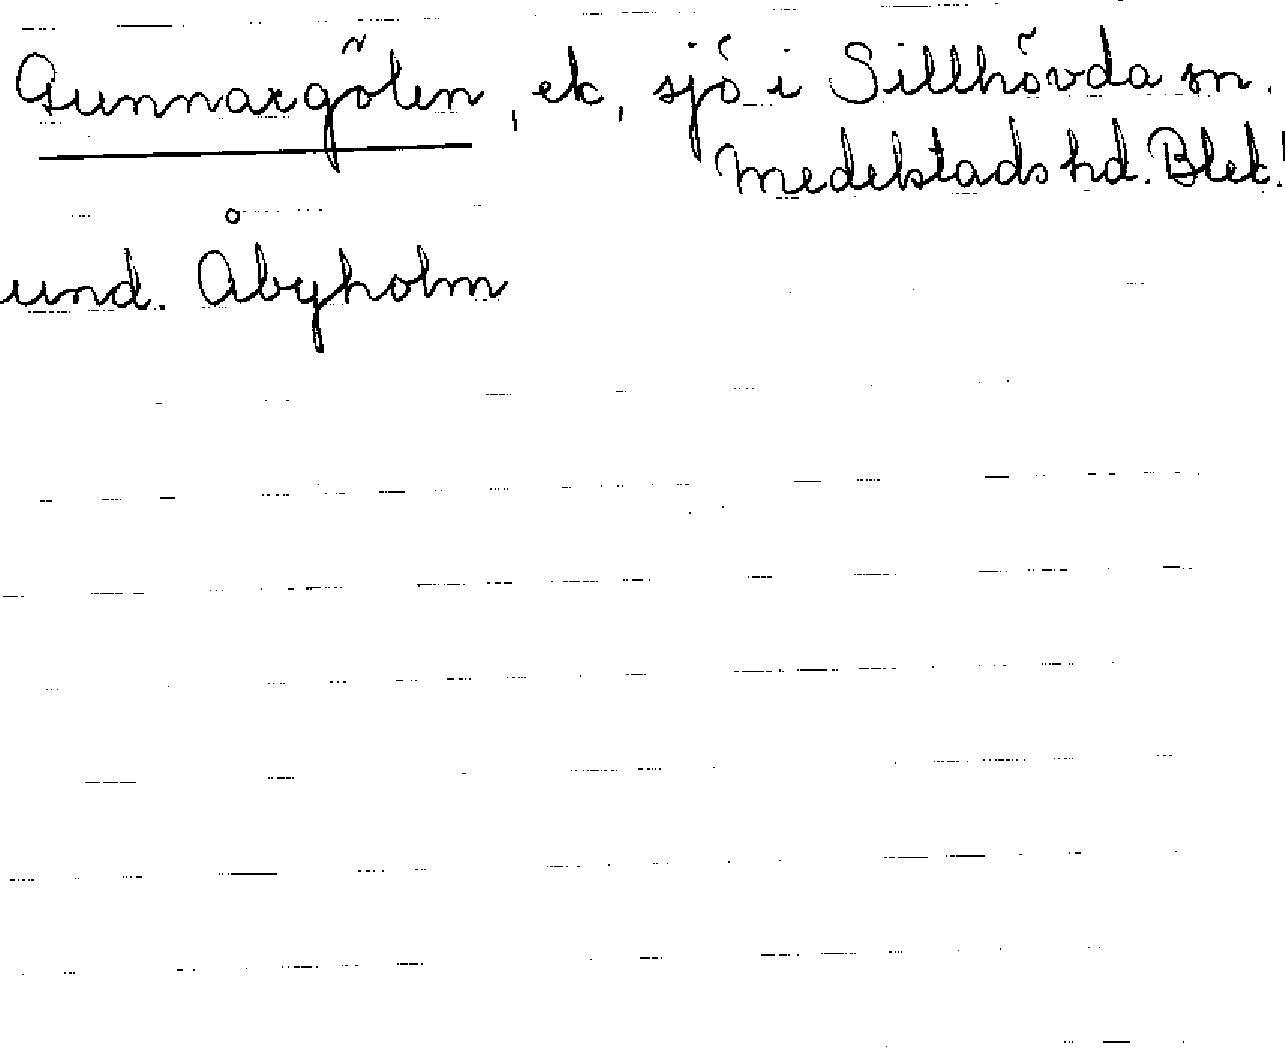 Gunnargölen, ek, sjö i Sillhövda sn.
Medelstads hd. Blek.
und. Åbyholm